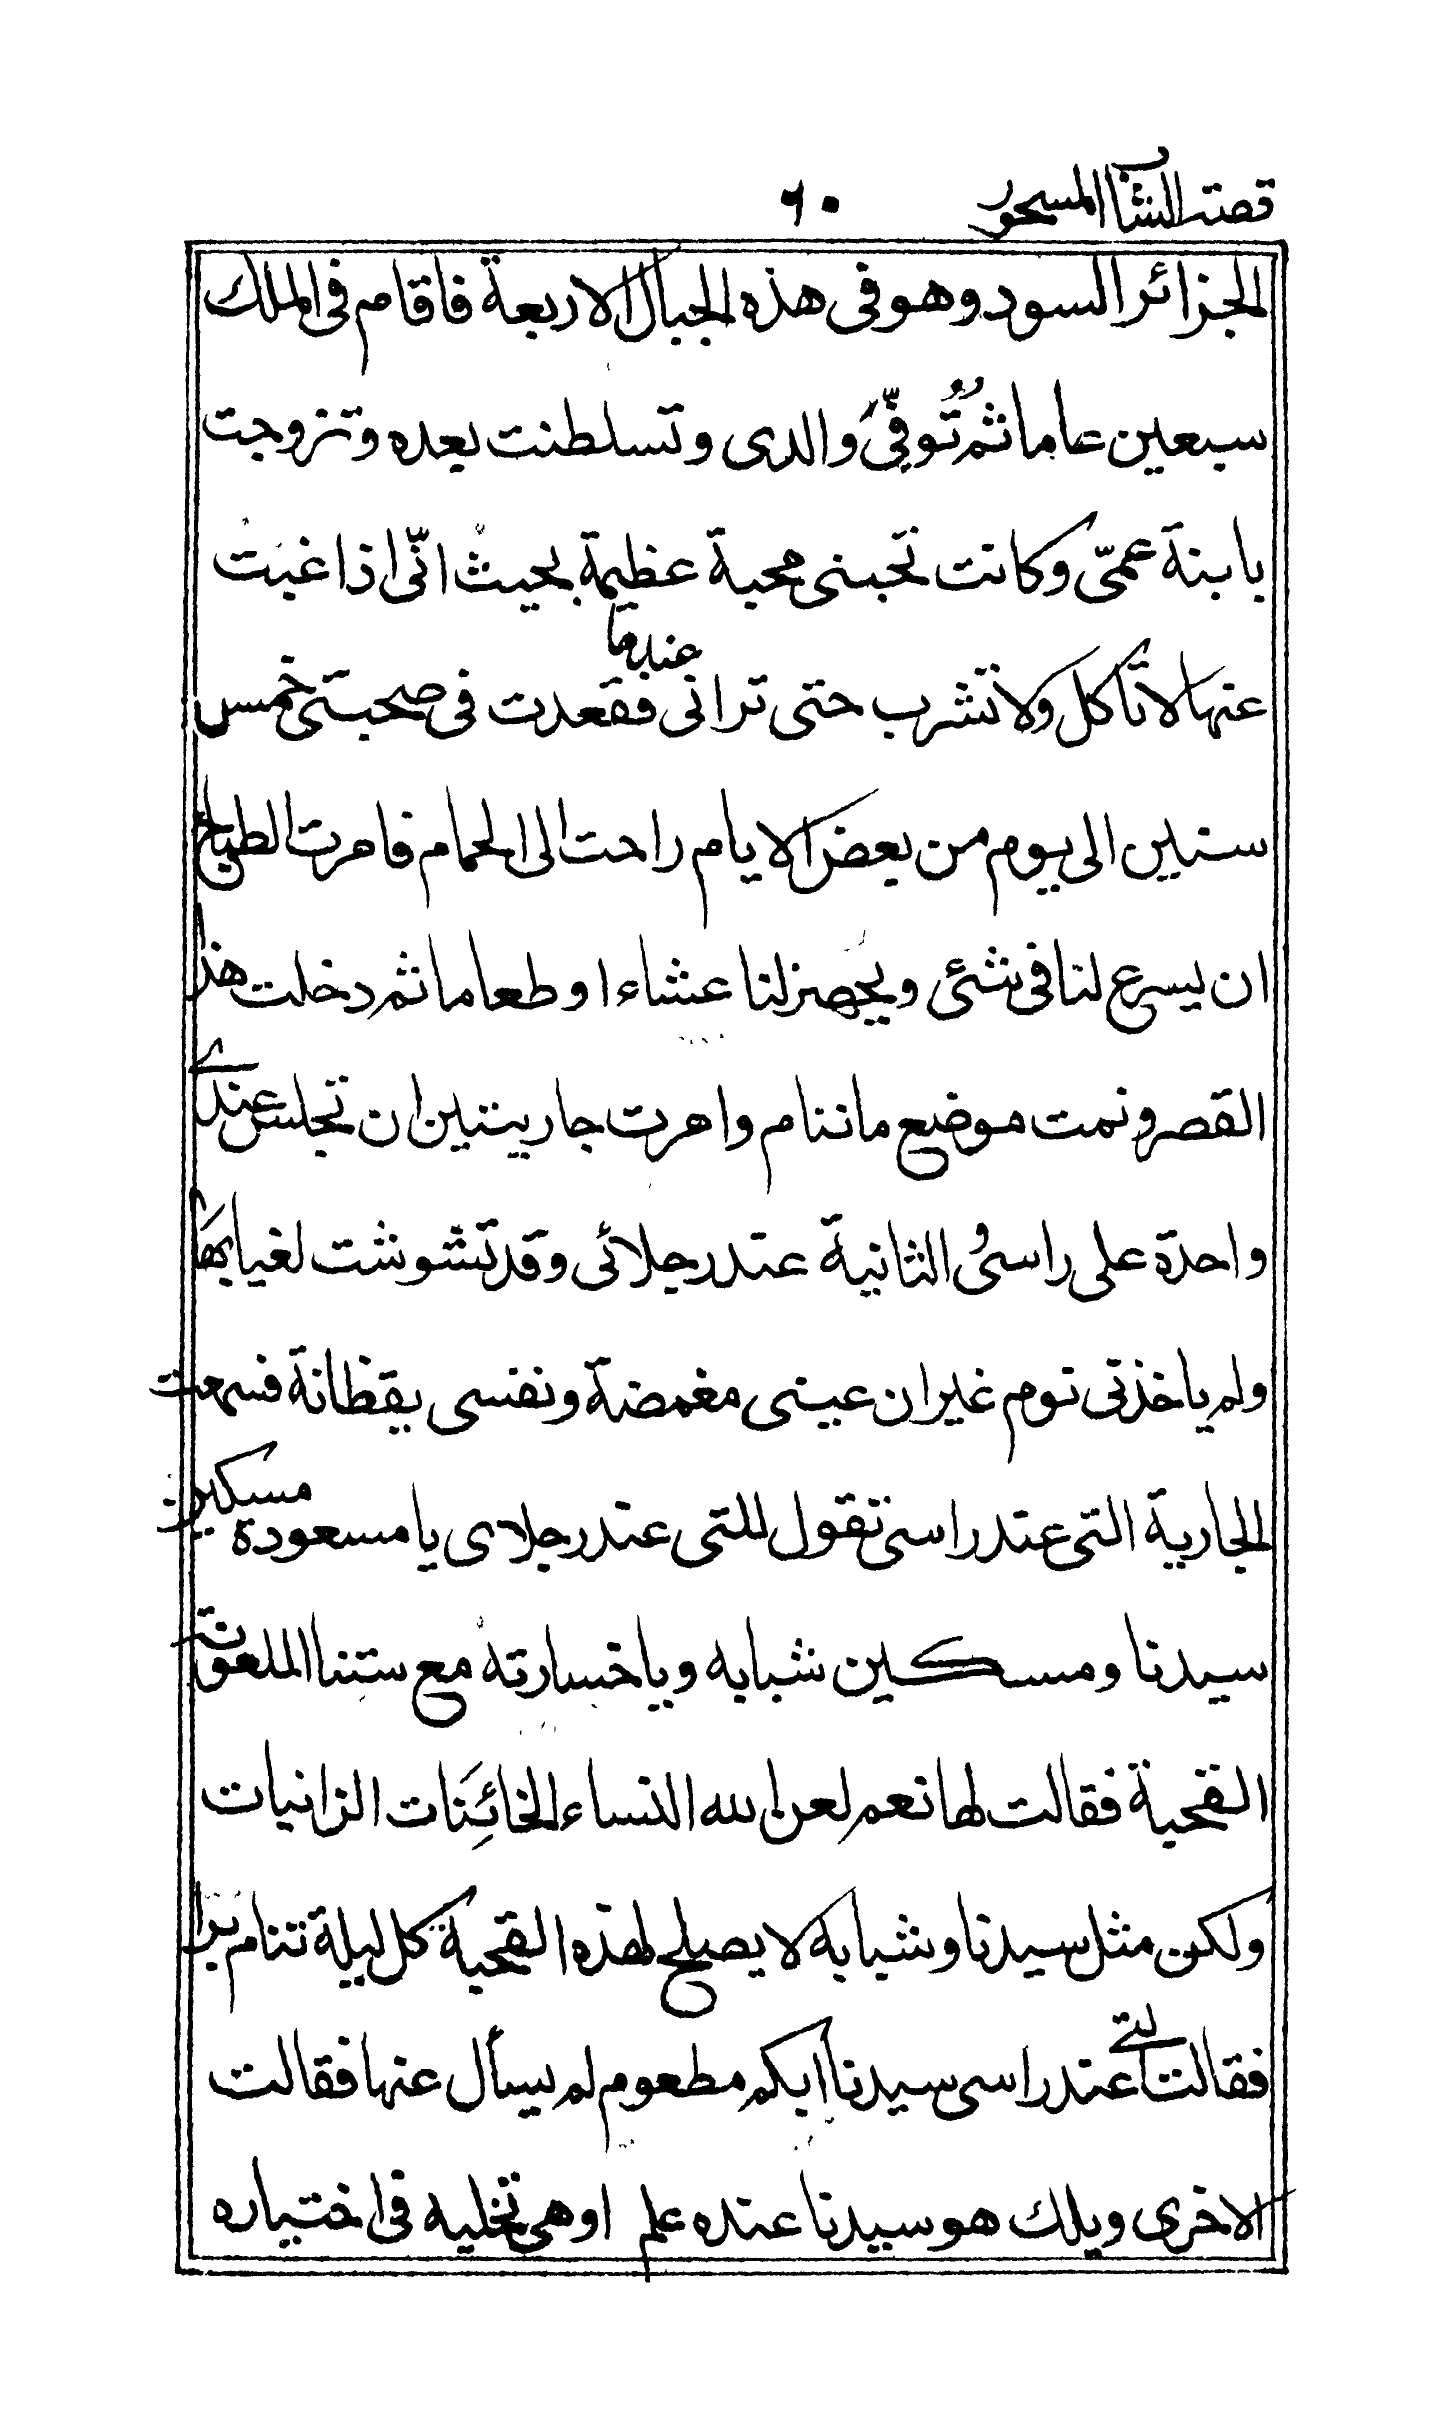 قصة الشاب المسحور ٦٠
الجزائر السود وهو فى هذه الجبال الاربعة فاقام فى الملك
سبعين عاما ثم تُوفِّىَ والدى وتسلطنت بعده وتزوجت
بابنة عمّى وكانت تحبنى محبة عظيمة بحيث انّى اذا غبت
عنها لا تاكل ولا تشرب حتى ترانى عندها فقعدت فى صحبتى خمس
سنين الى يوم من بعض الايام راحت الى الحمام فامرت الطباخ
ان يسرع لنا فى شئ ويجهز لنا عشاء او طعاما ثم دخلت هذا
القصر ونمت موضع ما ننام وامرت جاريتين ان تجلس عندے
واحدة على راسى والثانية عند رجلائى وقد تشوشت لغيابها
ولم ياخذنى نوم غير ان عينى مغمضة ونفسى يقظانة فسمعت
الجارية التى عند راسى تقول للتى عند رجلاى يا مسعودة مسكين
سيدنا ومسكين شبابه ويا خسارته مع ستنا الملعونة
القحبة فقالت لها نعم لعن الله النساء الخائِنَات الزانيات
ولكن مثل سيدنا وشبابه لا يصلح لهذه القحبة كل ليلة تنام برا
فقالت التے عند راسى سيدنا ابكم مطعوم لم يسأل عنها فقالت
الاخرى ويلك هو سيدنا عنده علم او هى تخليه فى اختياره